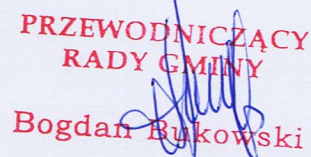 PRZEWODNICZĄCY
RADY GMINY
Bogdan Bukowski